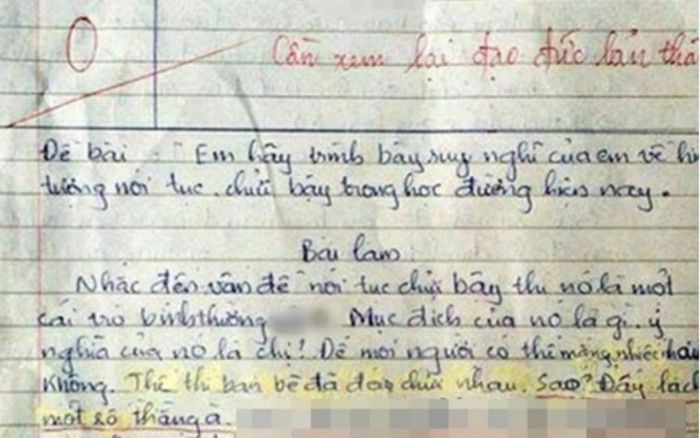 0
Cần xem lại đạo đức bản thâ
Đề bài: Em hãy trình bày suy nghĩ của em về hiệ
tượng nói tục, chửi bậy trong học đường hiện nay.
Bài làm:
Nhắc đến vấn đề nói tục chửi bậy thì nó là một
cái trò bình thường Mục đích của nó là gì, ý
nghĩa của nó là chi! Để mọi người có thể mắng nhiếc nhau
Không. Thế thì bạn bè đã chửi nhau. Sao? Đấy là
một số thằng à.